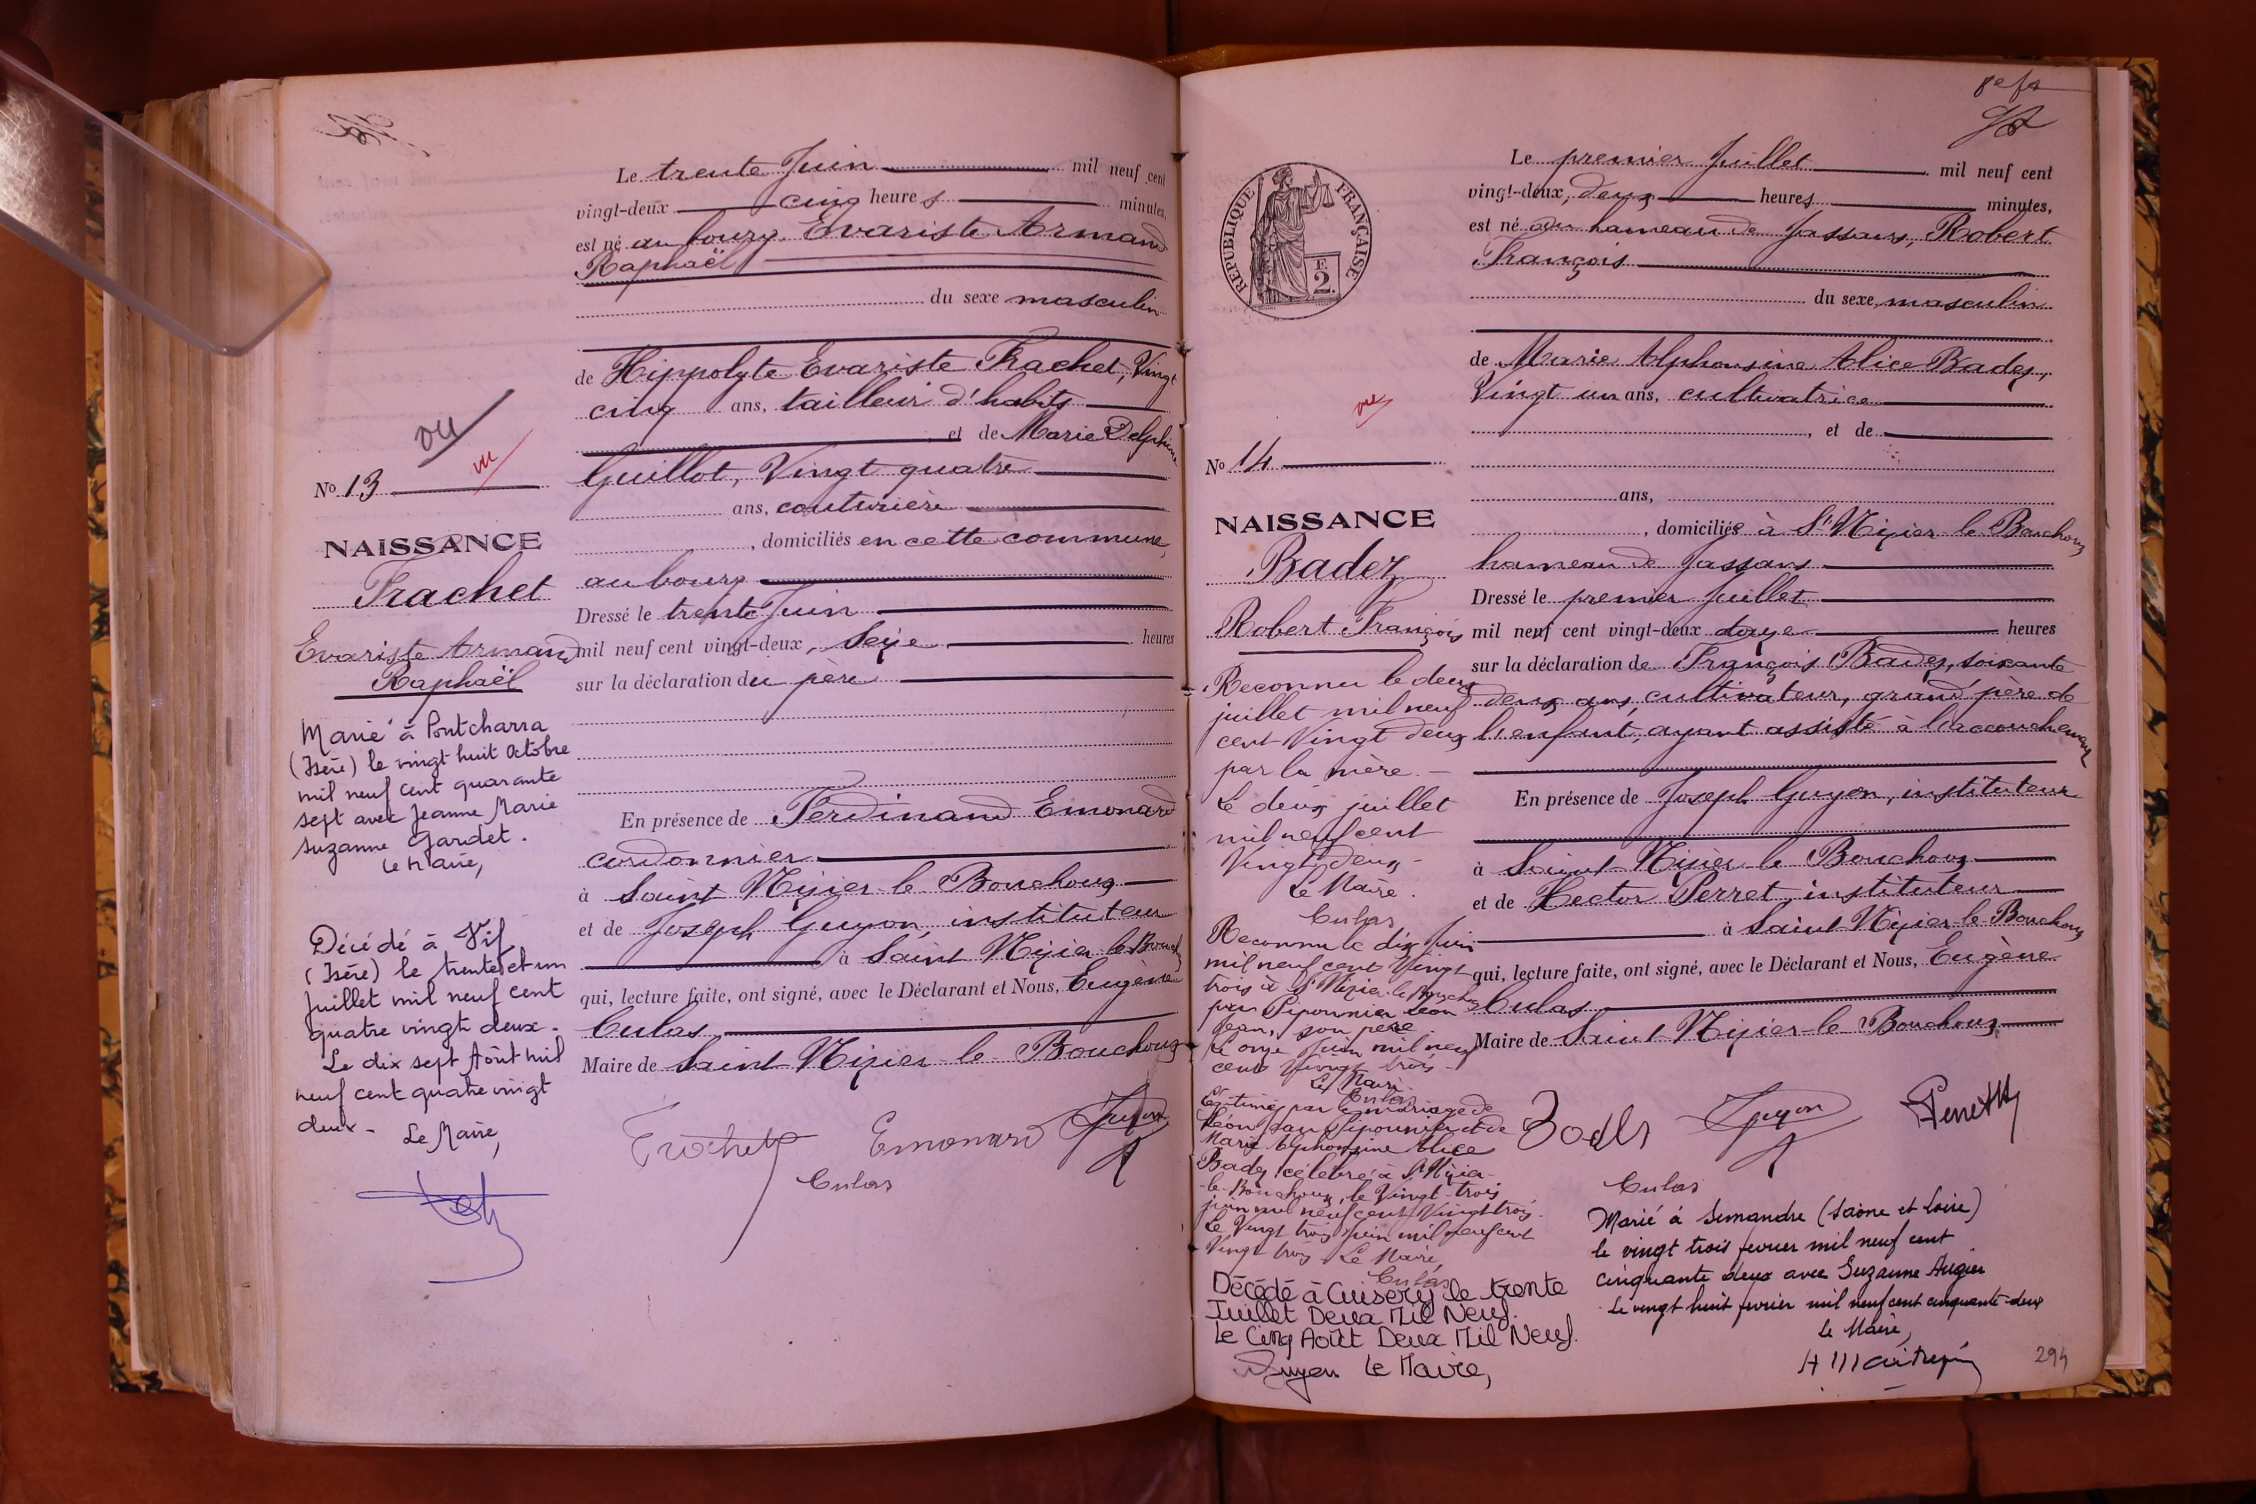 Le trente Juin mil neuf cent
vingt-deux cinq heures minutes,
est né au bourg, Evariste Armand
Raphaël
du sexe masculin
de Hippolyte Evariste Trachet, Vingt
cinq ans, tailleur d'habits
et de Marie Delphine
Guillot, Vingt quatre
ans, couturière
, domiciliés en cette commune,
au bourg
Dressé le trente Juin
mil neuf cent vingt-deux, seize heures
sur la déclaration du père
En présence de Ferdinand Emonard
cordonnier
à Saint Nizier le Bouchoux
et de Joseph Guyon, instituteur
à Saint Nizier le Bouch
qui, lecture faite, ont signé, avec le Déclarant et Nous, Eugène
Culas
Maire de Saint Nizier le Bouchoux
Trachet Emonard Guyon
Culas
vu
vu
No 13
NAISSANCE
Trachet
Evariste Armand
Raphaël
Marié à Pontcharra
(Isère) le vingt huit Octobre
mil neuf cent quarante
sept avec Jeanne Marie
Suzanne Gardet.
Le Maire,
Décédé à Vif
(Isère) le trente et un
Juillet mil neuf cent
quatre vingt deux.
Le dix sept Août mil
neuf cent quatre vingt
deux -
Le Maire,
REPUBLIQUE FRANÇAISE
F.
2.
Le premier Juillet mil neuf cent
vingt-deux, deux heures minutes,
est né au hameau de Jassans, Robert
François
du sexe masculin
de Marie Alphonsine Alice Badez,
Vingt un ans, cultivatrice
, et de
ans,
, domiciliée à St Nizier le Bouchoux
hameau de Jassans
Dressé le premier Juillet
mil neuf cent vingt-deux douze heures
sur la déclaration de François Badez, soixante
deux ans, cultivateur, grand père de
l'enfant, ayant assisté à l'accouchement
En présence de Joseph Guyon, instituteur
à Saint Nizier le Bouchoux
et de Hector Perret, instituteur
à Saint Nizier le Bouchoux
qui, lecture faite, ont signé, avec le Déclarant et Nous, Eugène
Culas
Maire de Saint Nizier le Bouchoux
Guyon
Culas
Marié à Simandre (Saône et Loire)
le vingt trois fevrier mil neuf cent
cinquante deux avec Suzanne Augier
Le vingt huit fevrier mil neuf cent cinquante-deux
Le Maire,
294
vu
No 14
NAISSANCE
Badez
Robert François
Reconnu le deux
juillet mil neuf
cent Vingt deux
par la mère. -
Le deux juillet
mil neuf cent
Vingt deux -
Le Maire.
Culas
Reconnu le dix Juin
mil neuf cent Vingt
trois à St Nizier le Bouchoux
par Piponnier Léon
Jean, son père
Le onze Juin mil neuf
cent Vingt trois -
Le Maire.
Culas
Légitimé par le mariage de
Léon Jean Piponnier et de
Marie Alphonsine Alice
Badez célébré à St Nizier
-le-Bouchoux, le Vingt-trois
juin mil neuf cent Vingt trois.
Le Vingt trois Juin mil neuf cent
Vingt trois Le Maire,
Culas
Décédé à Cuisery le trente
Juillet Deux Mil Neuf.
Le Cinq Août Deux Mil Neuf.
Le Maire,